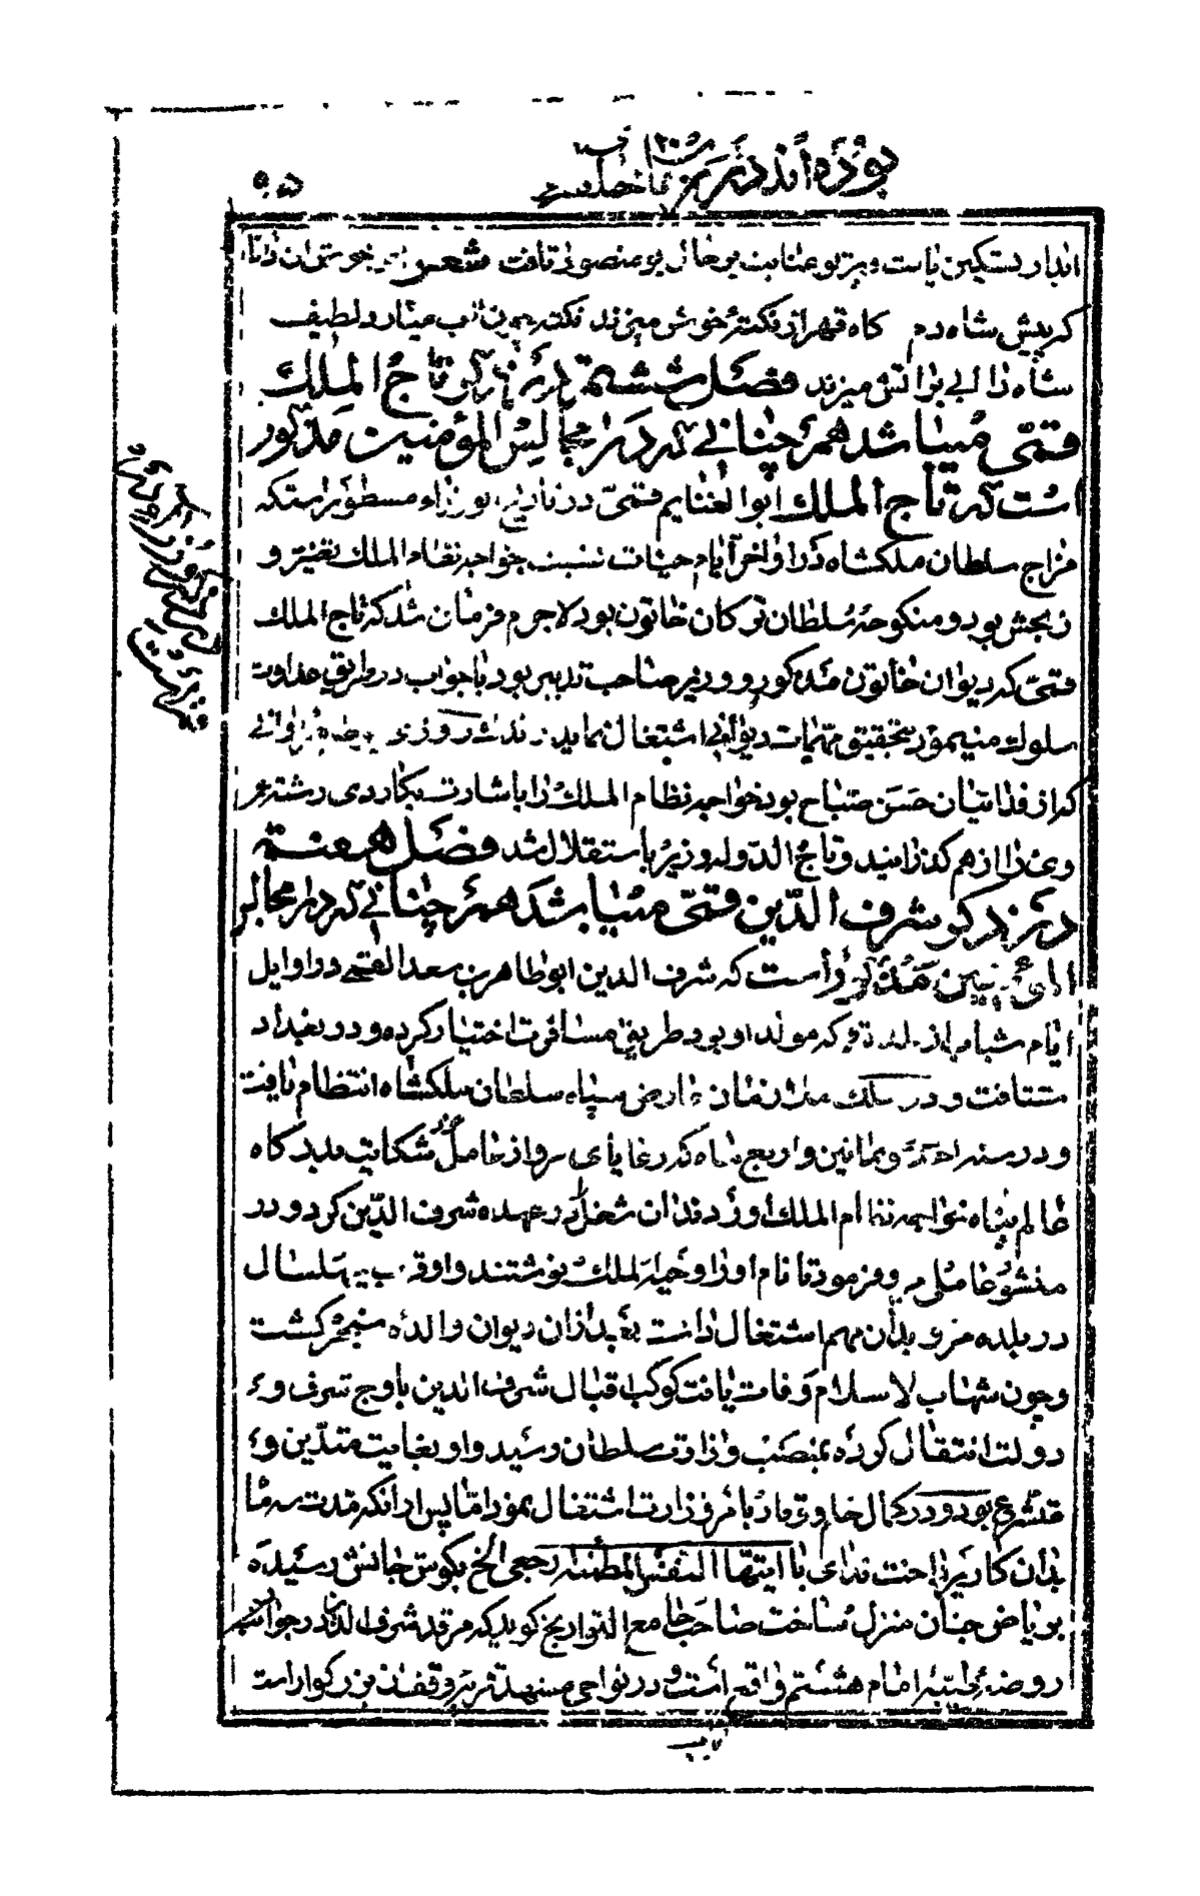 بوده اند در
کر پیش شاه دم کاه قهر از نکتهٔ خوش میزند نکته چون آب میار و لطیف
شاه را آبی بر آتش میزند فصل ششم در ذکر تاج الملک
قمّی میباشد همچنانی که در مجالس المؤمنین مذکور
است که تاج الملک ابوالغنایم قمّی در تاریخ وزراء مسطور استکه
مزاج سلطان ملکشاه در اواخر ایام حیات نسبت بخواجه نظام الملک تغیر و
رنجش بود و منکوحهٔ سلطان ترکان خاتون بود لاجرم فرمان شد که تاج الملک
قمّی که دیوان خاتون مذکور و وزیر صاحب تدبیر بود با خواب در طریق عداوت
سلوک مینمود بتحقیق مهمات دیوانی اشتغال نماید روزی
که از فدائیان حسن صباح بود خواجه نظام الملک را باشارت بکاردی رشته عمر
وی را از هم کذرانید و تاج الدوله وزیر باستقلال شد فصل هفتم
در ذکر شرف الدین قمّی میباشد همچنانی که در مجالس
المؤمنین مذکور است که شرف الدین ابو طاهر بن سعد القمی در اوایل
ایام شباب از بلده قم که مولد او بود طریق مسافرت اختیار کرده و در بغداد
شتافت و در سلک ملازمان عارض سپاه سلطان ملکشاه انتظام یافت
و در سنه احدی و ثمانین و اربع ماه که رعایای مرو از عامل خود شکایت بدرکاه
عالم پناه خواجه نظام الملک آوردند آن شغل در عهده شرف الدین کرد و در
منشور عاملی مرو فرمود تا نام او را وجیه الملک نوشتند و او قریب چهل سال
در بلده مرو بدان مهم اشتغال داشت بعد از آن دیوان والدهٔ سنجر کشت
و چون شهاب الاسلام وفات یافت کوکب اقبال شرف الدین باوج شرف و
دولت انتقال کرده بمنصب وزارت سلطان رسید و او بغایت متدین و
متشرع بود و در کمال جاه و وقار بامر وزارت اشتغال نمود اما پس از آنکه مدت سه ماه
بدان کار پرداخت ندای یا ایتها النفس المطمئنه ارجعی الخ بکوش جانش رسیده
بریاض جنان منزل ساخت صاحب جامع التواریخ کوید که مرقد شرف الدین در جوار
روضهٔ امام هشتم واقع است و در نواحی مشهد قریه وقف آن بزرکوار است